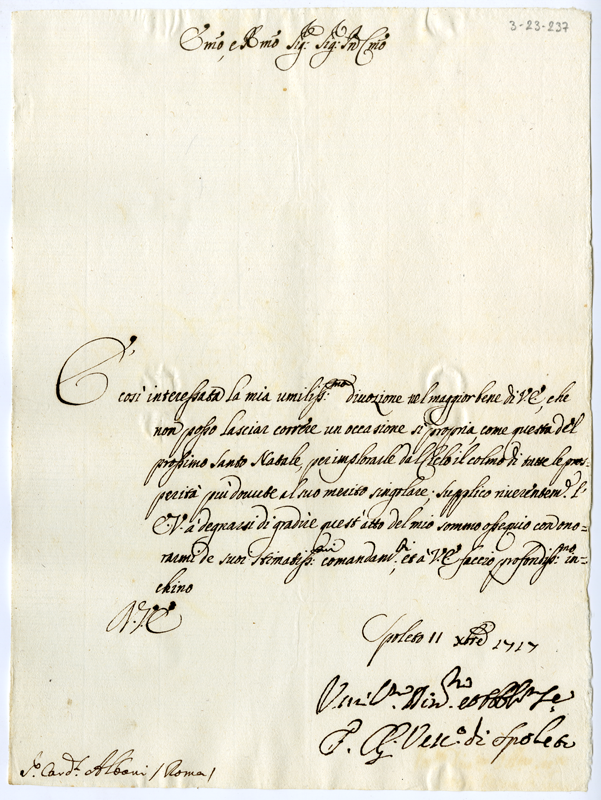 3-23-237
Emo, e Rmo Sig: Sig: Pn Cmo
E' così interessata la mia umiliss:ma divozione nel maggior bene di V.E., che
non posso lasciar correre un occasione si propria, come questa del
prossimo santo Natale, per implorarle dal Cielo il colmo di tutte le pros-
perità più dovute al suo merito singolare; supplico riverentem.e l'
E.V. a degnarsi di gradire quest'atto del mio sommo ossequio con ono=
rarmi de suoi stimatiss:mi comandam.ti, et à V.E. faccio profondiss:mo in=
chino
D.V.E.
Spoleto 11 xbre 1717
Umil.mo Div.mo et Obbl.mo Se.
Vesc.o di Spoleto
S.r Card.l Albani / Roma /